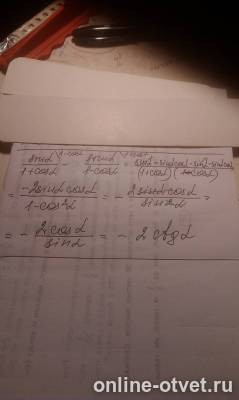 sinα/1+cosα \1-cosα - sinα/1-cosα \1+cosα = sinα-sinαcosα-sinα-sinαcosα/(1+cosα)(1-cosα)
= -2sinαcosα/1-cos²α = - 2sinα·cosα/sin²α =
= - 2cosα/sinα = - 2ctgα
online-otvet.ru